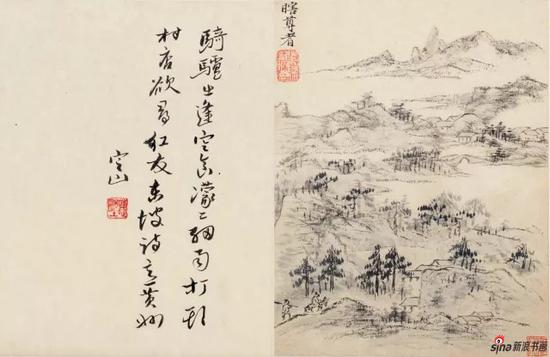 瞎尊者
騎驢出逢濛〻細雨打頭
村店欲尋紅友東坡詩黃州
定山
sina新浪书画